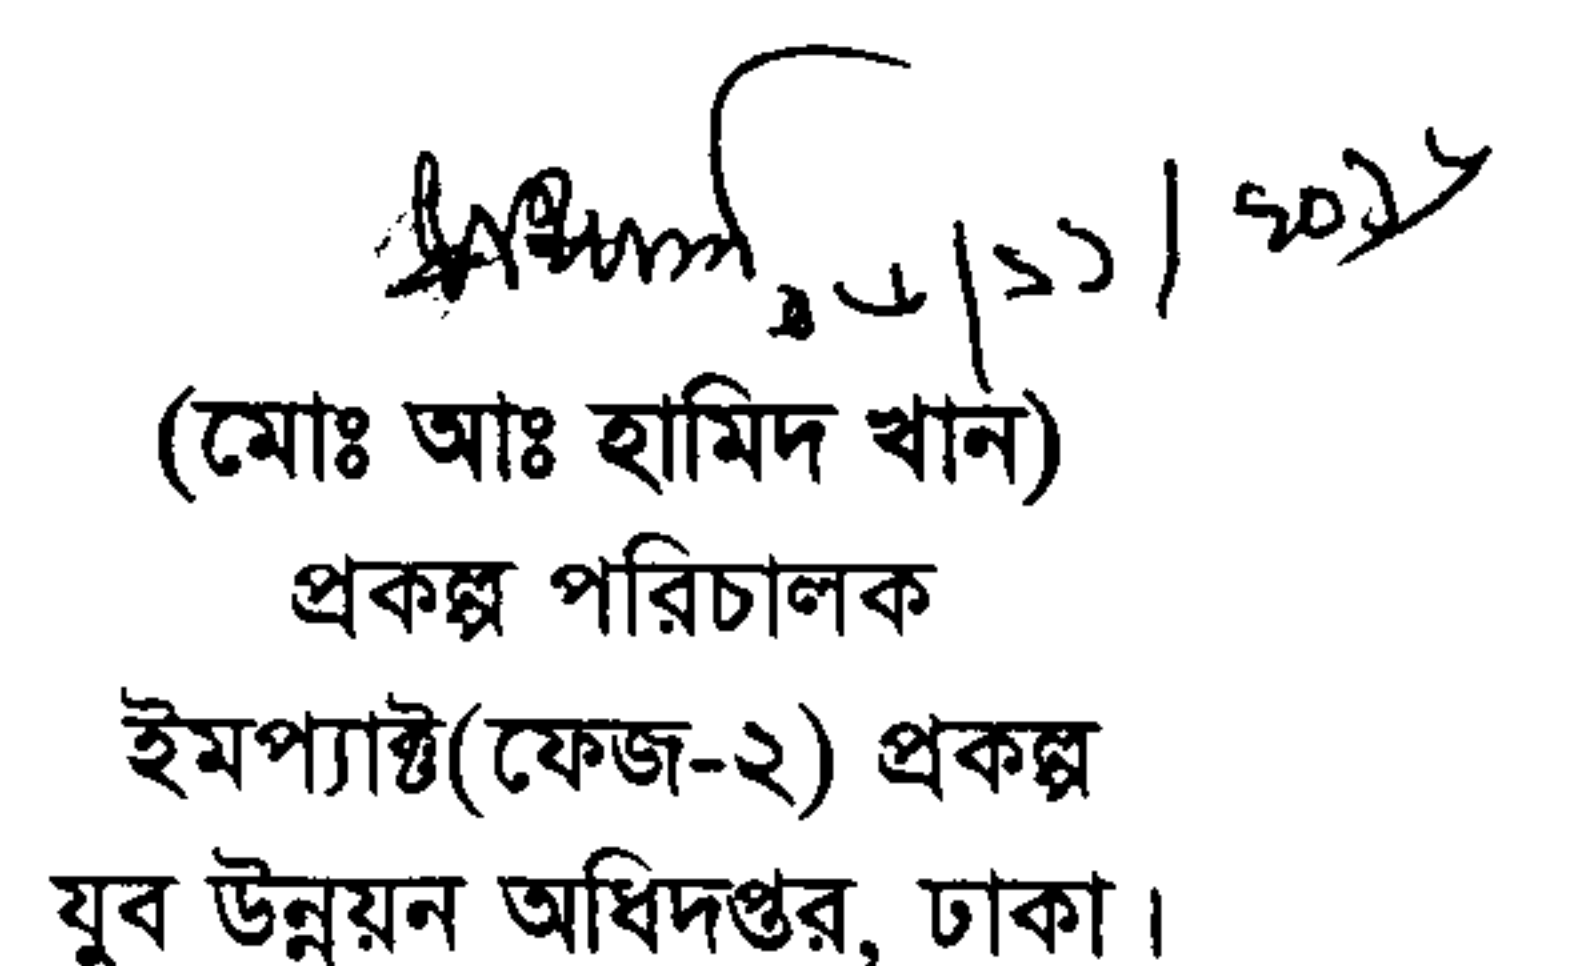 (মোঃ আঃ হামিদ খান)
প্রকল্প পরিচালক
ইমপ্যাক্ট(ফেজ-২) প্রকল্প
যুব উন্নয়ন অধিদপ্তর, ঢাকা।